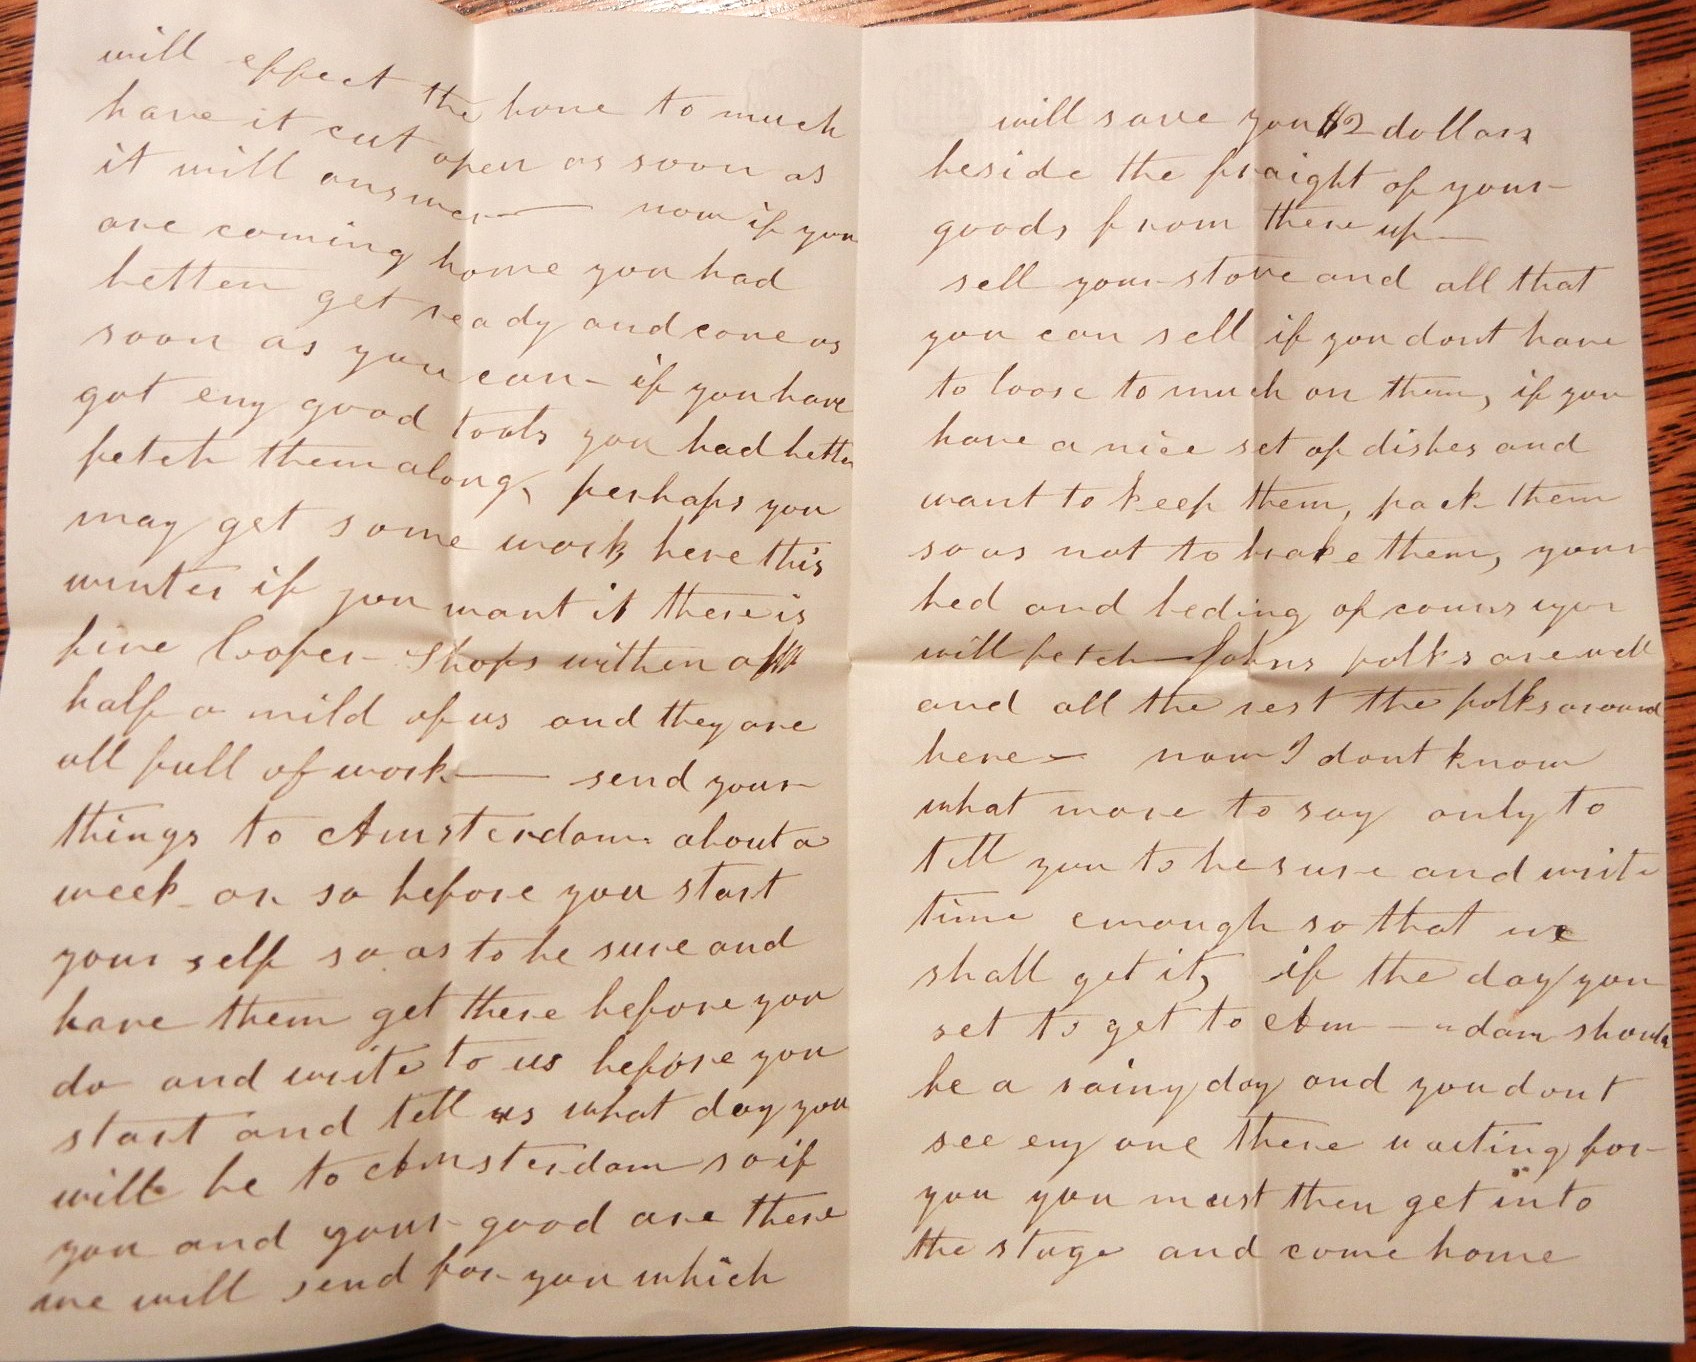 will effect the bone to much
have it cut open as soon as
it will answer — now if you
are coming home you had
better get ready and come as
soon as you can - if you have
got eny good tools you had better
fetch them along, perhaps you
may get some work here this
winter if you want it there is
five Cooper Shops within a
half a mild of us and they are
all full of work — send your
things to Amsterdam about a
week or so before you start
your self so as to be sure and
have them get there before you
do and write to us before you
start and tell us what day you
will be to Amsterdam so if
you and your good are there
we will send for you which
will save you $2 dollars
beside the fraight of your
goods from there up —
sell your stove and all that
you can sell if you dont have
to loose to much on them, if you
have a nice set of dishes and
want to keep them, pack them
so as not to brake them, your
bed and beding of cours you
will fetch — Johns folks are well
and all the rest the folks around
here — now I dont know
what more to say only to
tell you to be sure and write
time enough so that we
shall get it, if the day you
set to get to Am - dam should
be a rainy day and you dont
see eny one there waiting for
you you must then get into
the stage and come home